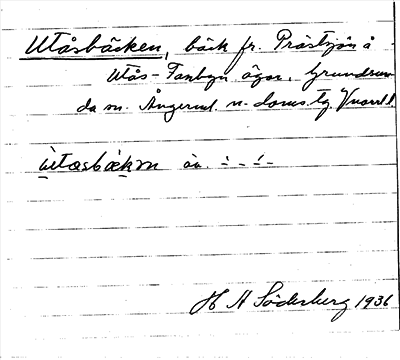 Utåsbäcken, bäck fr. Prästsjön å
Utås- Tanbyn ägor. Grundsun-
da sn. Ångerml. n. doms. tg. Vnorrl. l.
Söderberg 1936
H A